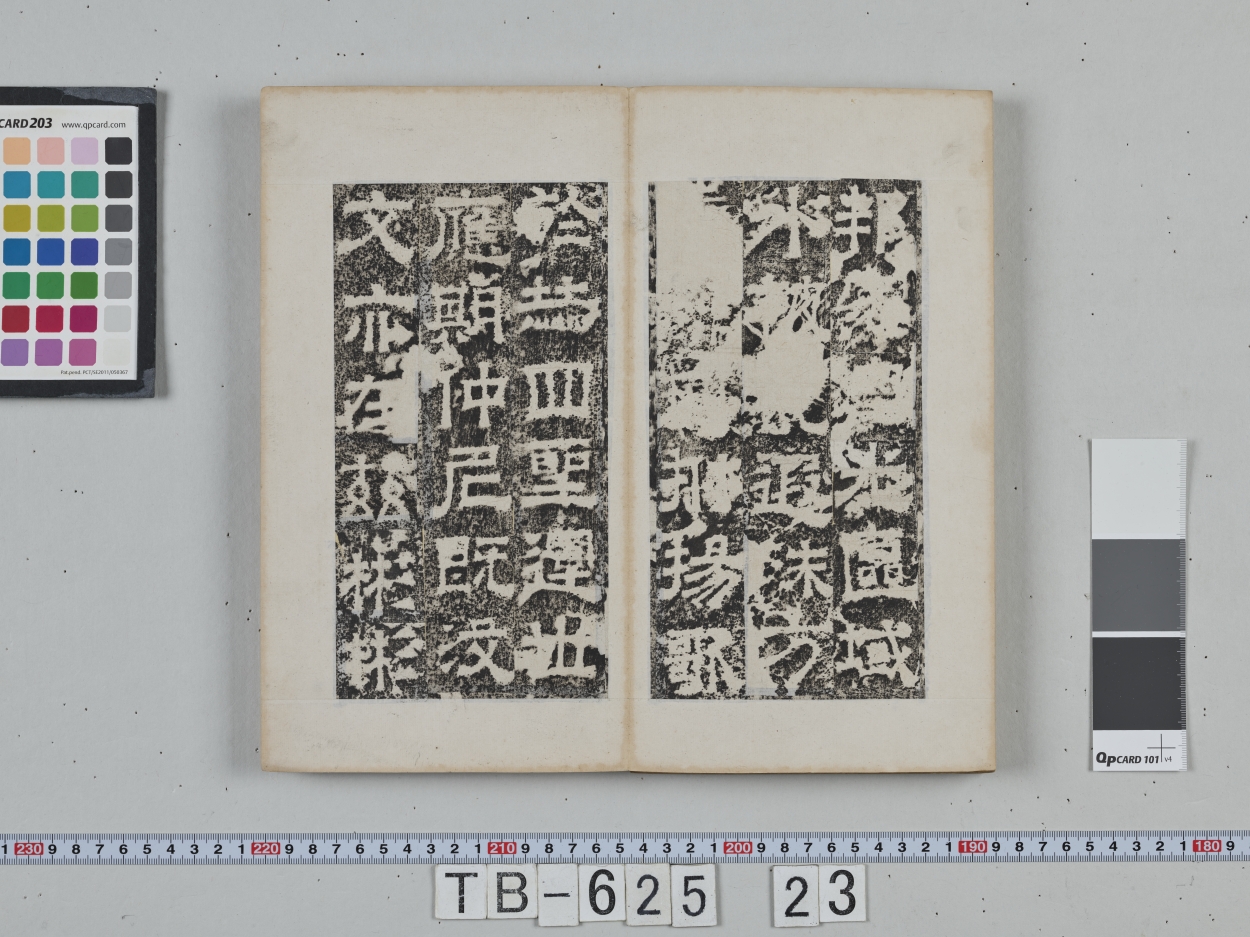 邦家內光區域
外被荒遐殊方
拊揚歌
於赫四聖運世
應期仲尼既沒
文亦在茲彬彬
CARD203 www.qpcard.com
QpCARD 101 v4
1 230 9 8 7 6 5 4 3 2 1 220 9 8 7 6 5 4 3 2 1 210 9 8 7 6 5 4 3 2 1 200 9 8 7 6 5 4 3 2 1 190 9 8 7 6 5 4 3 2 1 180 9
TB-625 23